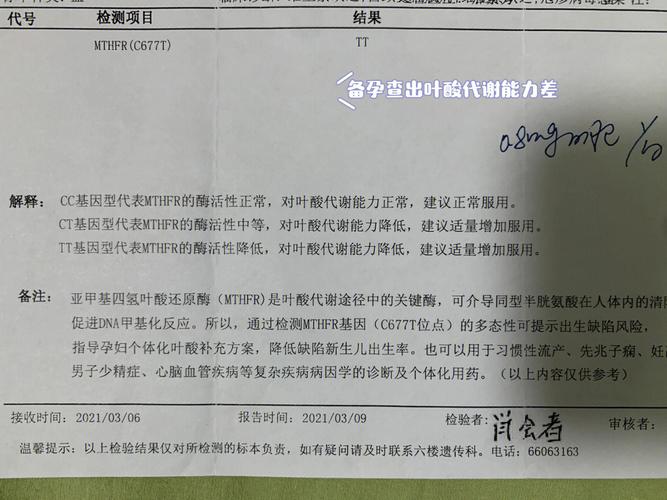 代号 检测项目 结果
MTHFR(C677T) TT
备孕查出叶酸代谢能力差
0.8mg
解释： CC基因型代表MTHFR的酶活性正常，对叶酸代谢能力正常，建议正常服用。
CT基因型代表MTHFR的酶活性中等，对叶酸代谢能力降低，建议适量增加服用。
TT基因型代表MTHFR的酶活性降低，对叶酸代谢能力降低，建议适量增加服用。
备注： 亚甲基四氢叶酸还原酶（MTHFR)是叶酸代谢途径中的关键酶，可介导同型半胱氨酸在人体内的清除
促进DNA甲基化反应。所以，通过检测MTHFR基因（C677T位点）的多态性可提示出生缺陷风险，
指导孕妇个体化叶酸补充方案，降低缺陷新生儿出生率。也可以用于习惯性流产、先兆子痫、妊高
男子少精症、心脑血管疾病等复杂疾病病因学的诊断及个体化用药。（以上内容仅供参考）
接收时间：2021/03/06 报告时间：2021/03/09 检验者: 审核者：
温馨提示：以上检验结果仅对所检测的标本负责，如有疑问请及时联系六楼遗传科。电话：66063163